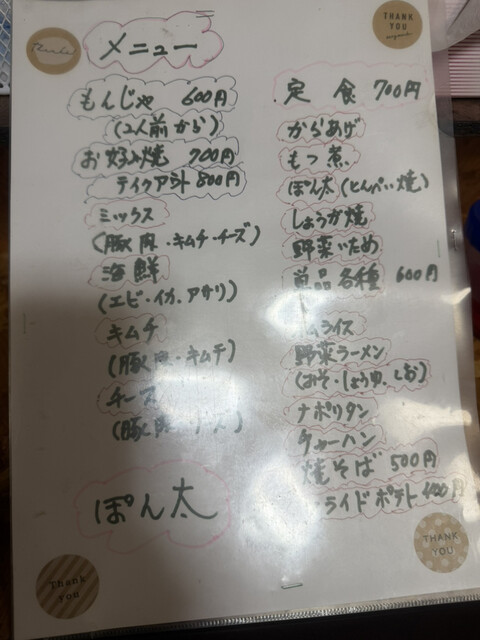 メニュー
もんじゃ 600円
(2人前から)
お好み焼 700円
テイクアウト 800円
ミックス
(豚肉・キムチ・チーズ)
海鮮
(エビ・イカ・アサリ)
キムチ
(豚肉・キムチ)
チーズ
(豚肉・チーズ)
ぽん太
定食 700円
からあげ
もつ煮
ぽん太(とんぺい焼)
しょうが焼
野菜いため
単品各種 600円
ムライス
野菜ラーメン
(みそ・しょうゆ・しお)
ナポリタン
チャーハン
焼そば 500円
ライドポテト 400円
THANK YOU
Thank you
THANK YOU